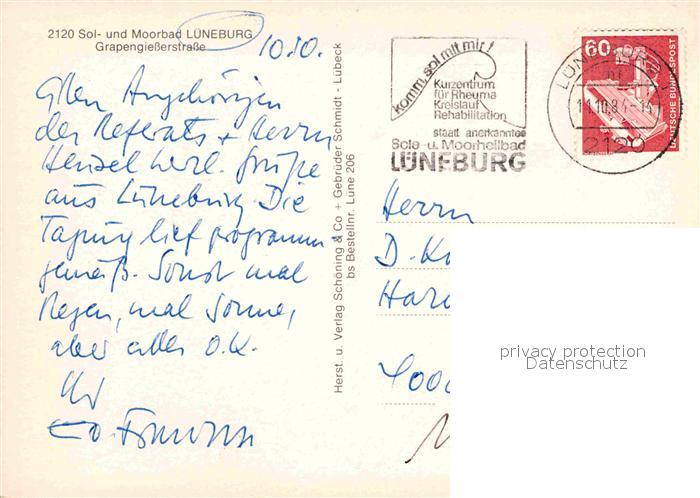 2120 Sol- und Moorbad LÜNEBURG
Grapengießerstraße
10.10.
Allen Angehörigen
des Referats + Herrn
Hensel herzl. Grüße
aus Lüneburg. Die
Tagung lief programm
gemäß. Sonst mal
Regen, mal Sonne,
aber alles O.K.
Ihr
Herst. u. Verlag Schöning & Co + Gebrüder Schmidt - Lübeck
bs Bestellnr. Lüne 206
komm, sol mit mir!
Kurzentrum
für Rheuma
Kreislauf
Rehabilitation
staatl anerkanntes
Sole- u. Moorheilbad
LÜNEBURG
60
DEUTSCHE BUNDESPOST
11.10.84
2120
Herrn
D.
400
privacy protection
Datenschutz